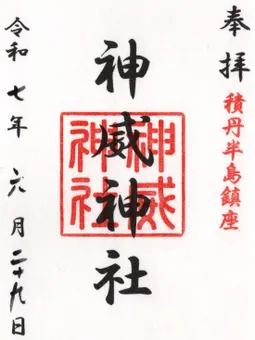 奉拝
積丹半島鎮座
神威神社
神威神社
令和七年六月二十九日